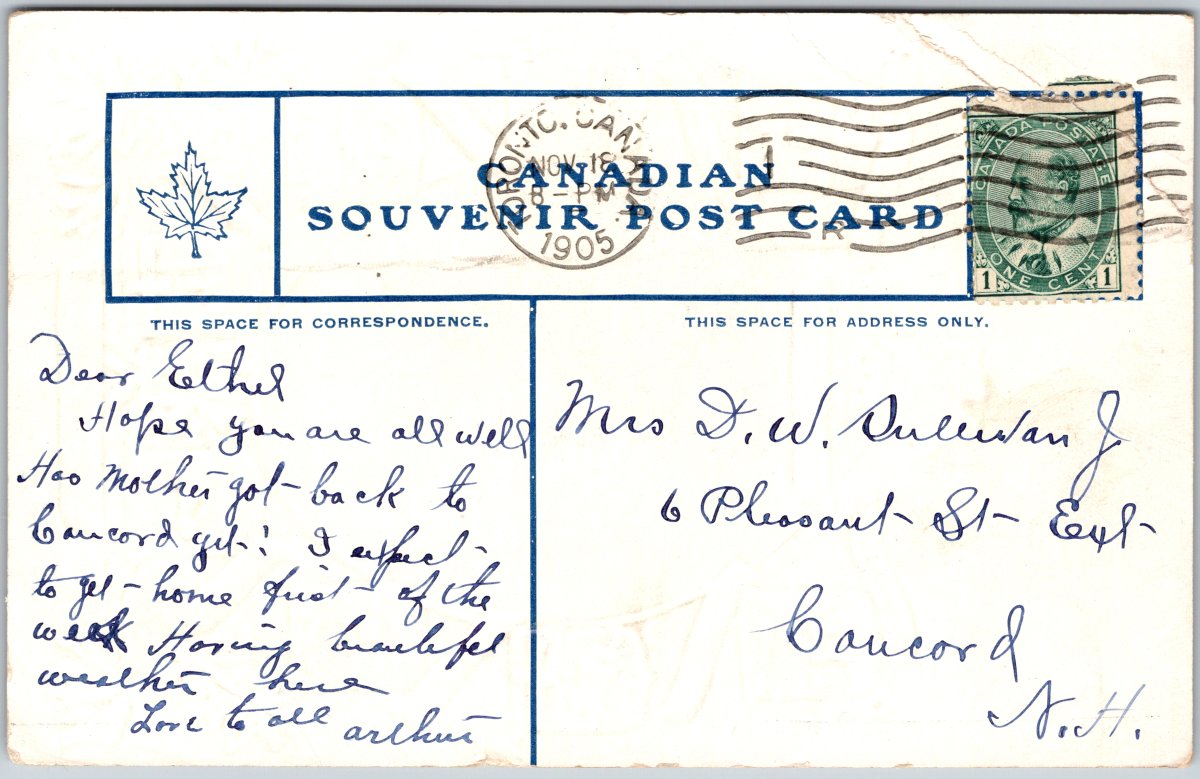 TORONTO, CANADA
NOV 18
8 - PM
1905
CANADIAN
SOUVENIR POST CARD
R
CANADA POSTAGE
1 ONE CENT 1
THIS SPACE FOR CORRESPONDENCE.
Dear Ethel
Hope you are all well
Has Mother got back to
Concord yet! I expect
to get home first of the
week Having beautiful
weather here
Love to all arthur
THIS SPACE FOR ADDRESS ONLY.
Mrs D. W. Sullivan J
6 Pleasant St Ext
Concord
N.H.